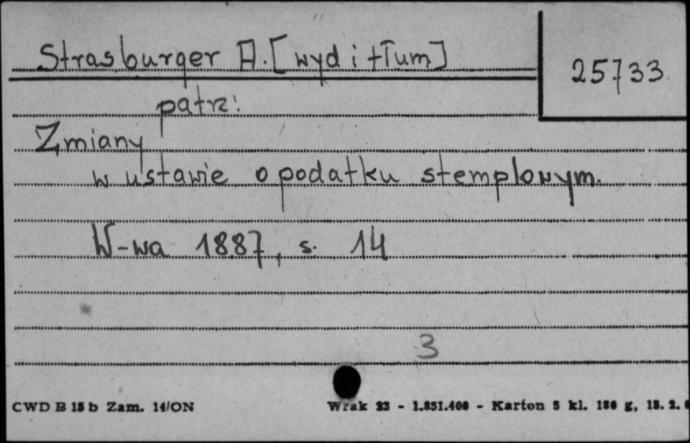 Strasburger A. [wyd i tłum]
25733
patrz:
Zmiany
w ustawie o podatku stemplowym.
W-wa 1887, s. 14
3
CWD B 15 b Zam. 14/ON
Wrak 23 - 1.851.400 - Karton 5 kl. 180 g, 18. 2.